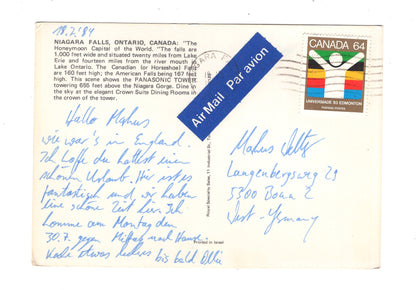 18.7.84
NIAGARA FALLS, ONTARIO, CANADA: "The
Honeymoon Capital of the World. "The falls are
1.000 feet wide and situated twenty miles from Lake
Erie and fourteen miles from the river mouth of
Lake Ontario. The Canadian (or Horseshoe) Falls
are 160 feet high; the American Falls being 167 feet
high. This scene shows the PANASONIC TOWER
towering 665 feet above the Niagara Gorge. Dine in
the sky at the elegant Crown Suite Dining Rooms in
the crown of the tower.
Hallo Markus
wie war's in England.
Ich hoffe du hattest einen
schönen Urlaub. Hier ist es
fantastisch und wir haben
eine schöne Zeit hier. Ich
komme am Montag den
30.7. gegen Mittag nach Hause.
Koche etwas leckeres bis bald
Royal Specialty Sales, 11 Industrial
Printed in Israel
Air Mail Par avion
CANADA 64
UNIVERSIADE '83 EDMONTON
POSTAGE POSTES
Markus
Langenbergsweg 29
5300 Bonn 2
West-Germany